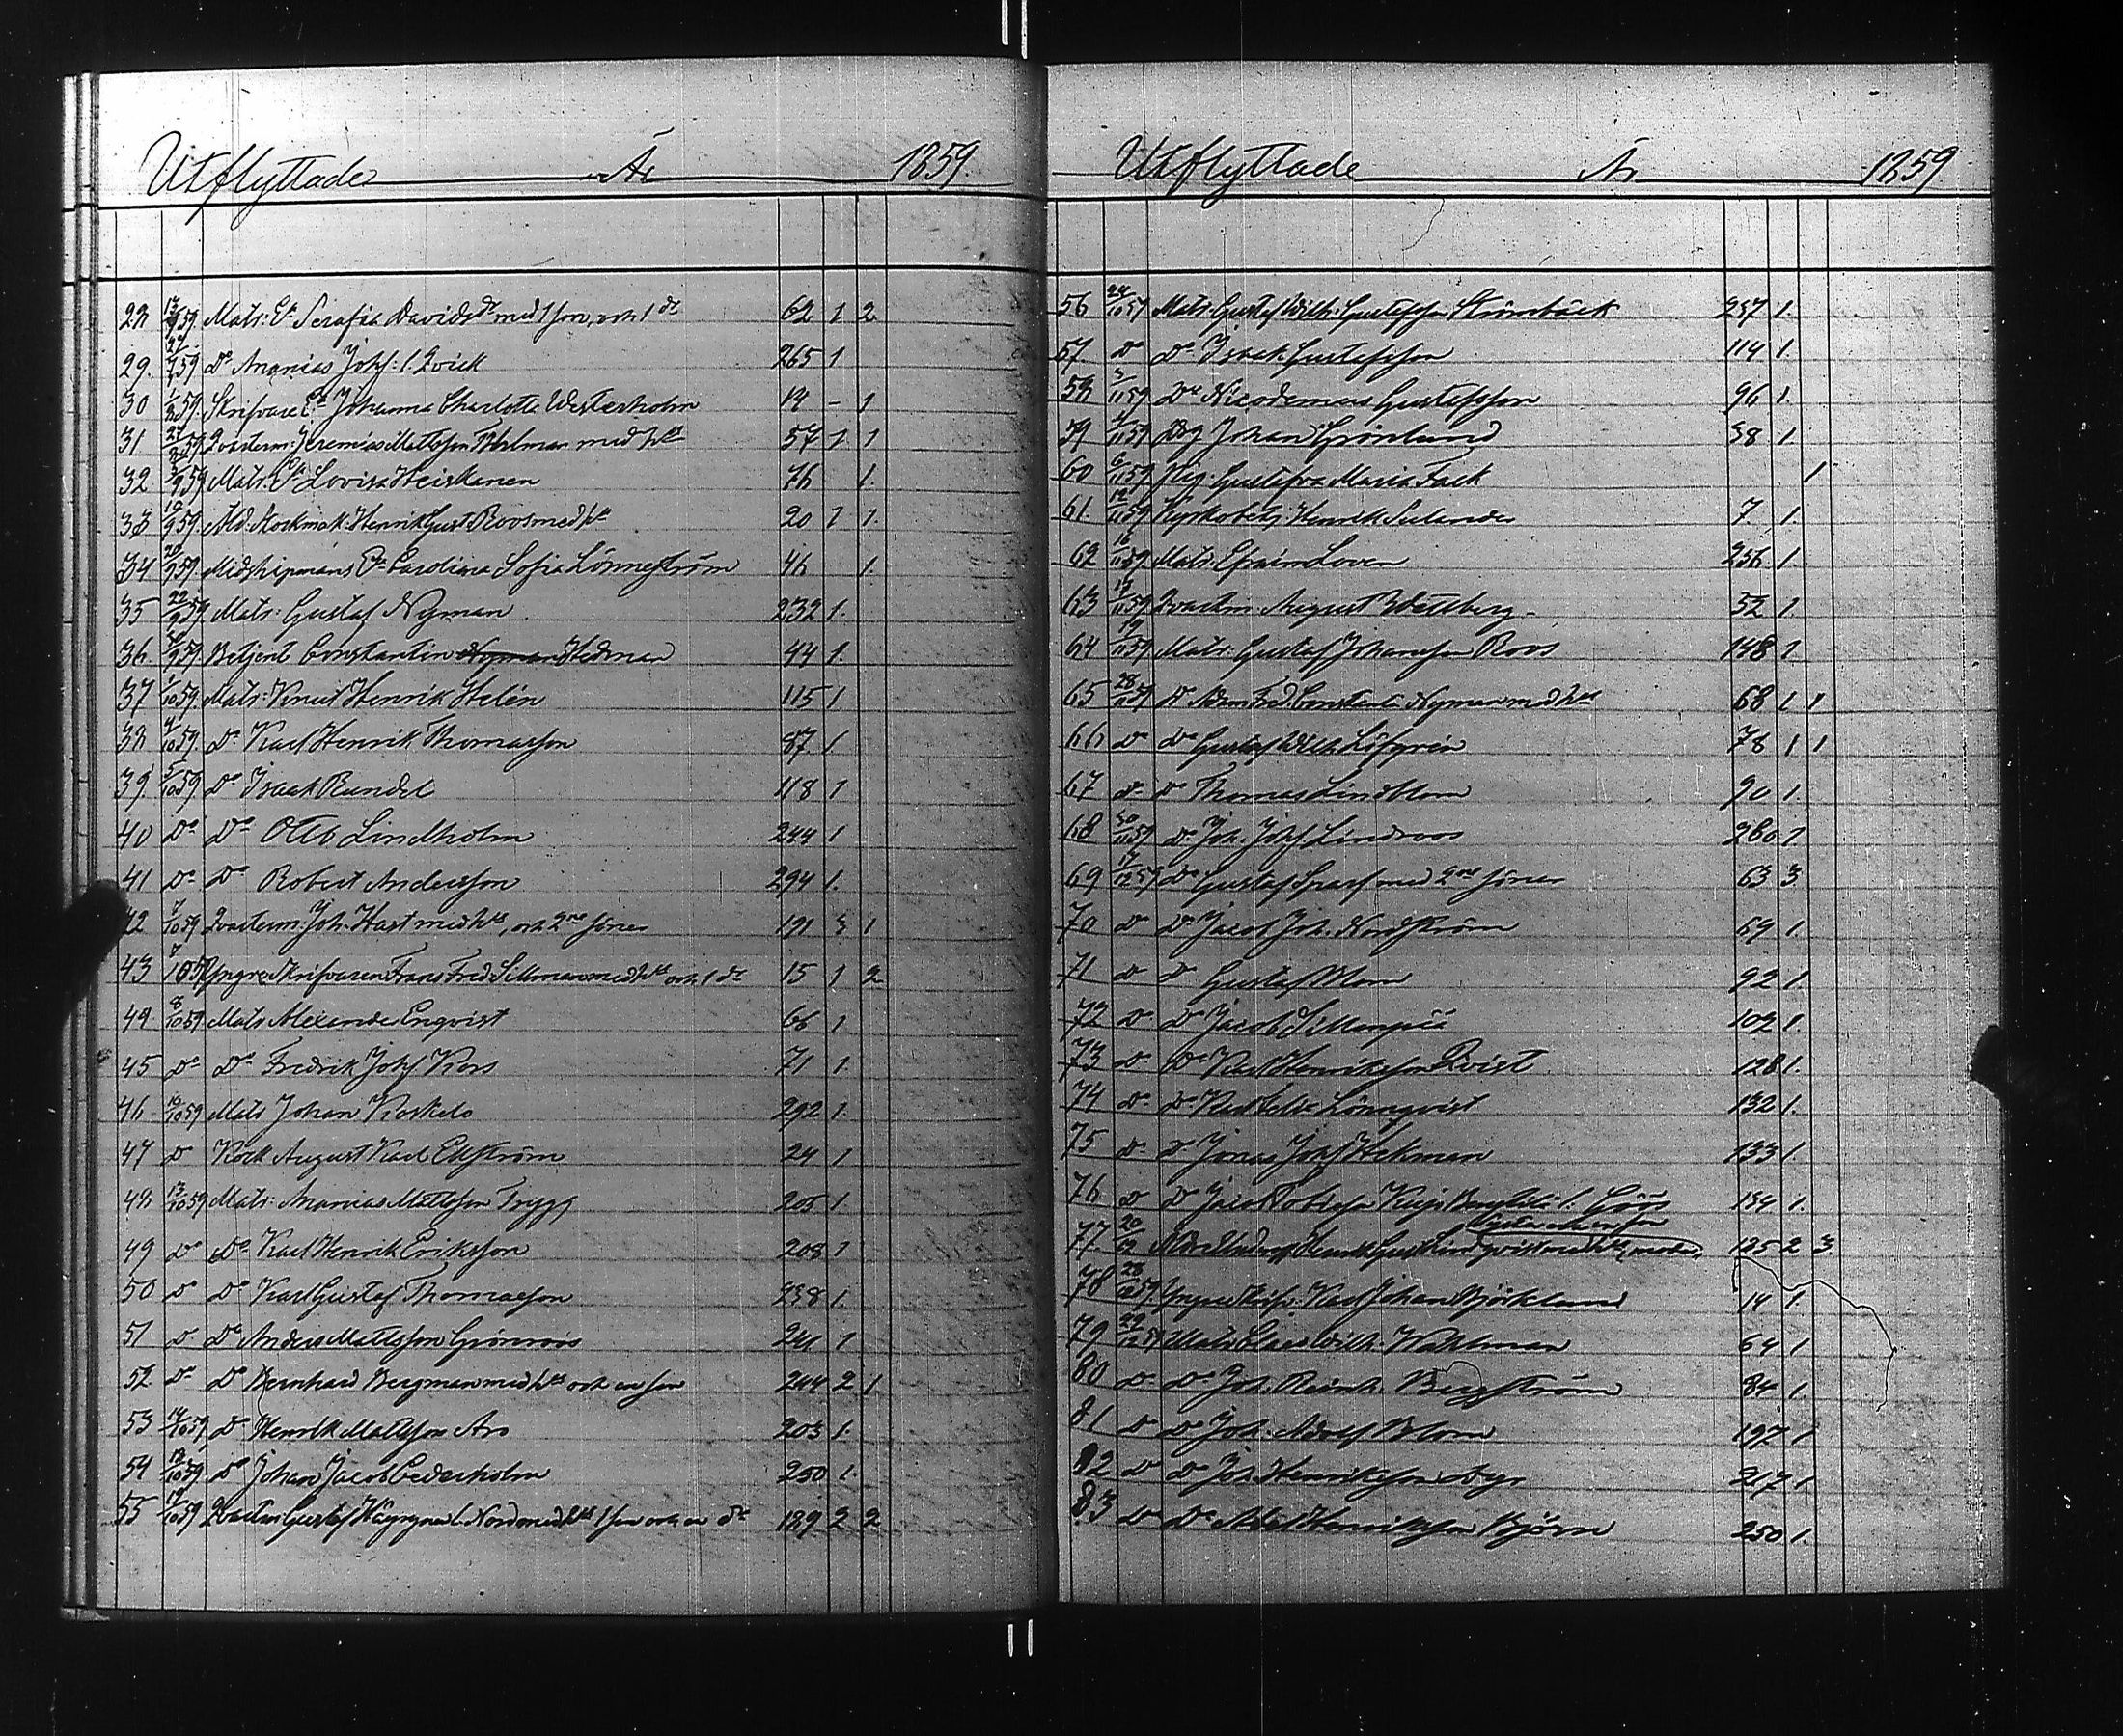 Utflyttade År 1859.
28 13/7 59. Mats: E:a Serafia Davidsdr med 1 son, och 1 dr 62 1 2
29. 29/7 59 Do Ananias Johs: s. Qvick 265 1
30 1/8 59. Skrifvare E:a Johanna Charlotte Westerholm 14 - 1
31 27/8 59 Qvarterm: Jeremias Mattsson Fihlman med h:u 57 1 1
32 3/9 59 Mats: E:a Lovisa Heiskanen 76 1.
33 19/9 59. Ald. Stockmak. Henrik Gust. Roos med h:u 20 1 1.
34 20/9 59. Midshipmans E:a Carolina Sofia Lönnström 46 1.
35 22/9 59 Mats: Gustaf Nyman 232 1.
36 59. Betjent Constantin Nyman Hedman 44 1.
37 1/10 59. Mats: Knut Henrik Helén 115 1
38 4/10 59. Do Karl Henrik Thomasson 87 1
39 5/10 59 Do Isaak Rundel 118 1
40 Do Do Otto Lindholm 244 1
41 Do Do Robert Andersson 294 1.
42 7/10 59 Qvarterm: Joh. Hast med h:u, och 2ne söner 191 3 1
43 8/10 59 Yngre Skrifvaren Frans Fred. Sillman med h:u och 1 dr 15 1 2
44 8/10 59 Mats Alexander Enqvist 66 1
45 Do Do Fredrik Johs Kors 71 1.
46 10/10 59 Mats Johan Koskelo 292 1.
47 Do Kock August Karl Ekström 24 1
48 13/10 59 Mats: Ananias Mattsson Trygg 205 1.
49 Do Do Karl Henrik Eriksson 208 1
50 Do Do Karl Gustaf Thomasson 238 1.
51 Do Do Anders Mattsson Grönroos 241 1
52 Do Do Bernhard Bergman med h:u och en son 244 2 1
53 14/10 59 Do Henrik Mattsson Aro 203 1.
54 18/10 59. Do Johan Jacob Cederholm 250 1.
55 19/10 59 Qvarterm Gustaf s. Nord med h:u 1 son och en dr 189 2 2
Utflyttade År 1859
56 24/10 59 Mats. Gustaf Wilh: Gustafsson Strömbäck 237 1.
57. Do Do Isaak Gustafsson 114 1.
58 3/11 59 Do Nicodemus Gustafsson 96 1.
59 4/11 59 Johan Grönlund 38 1.
60 6/11 59 Pig: Gustafva Maria Fack 1
61. 12/11 59 Kyrkobetj. Henrik Selander 7 1.
62 16/11 59 Mats. Efraim Loven 256 1.
63 19/11 59 Qvarterm. August Wallberg 52 1.
64 19/11 59 Mats: Gustaf Johansson Roos 148 1
65 28/11 59 Do Adam Fred. Constantin Nyman med h:u 68 1 1
66 Do Do Gustaf Wilh. Löfgrén 78 1 1
67 Do Do Thomas Lindblom 90 1.
68 30/11 59 Do Joh. Johs. Lindroos 260 1
69 17/12 59 Do Gustaf Sparf med 2ne söner 63 3
70 Do Do Jacob Joh. Nordström 69 1.
71 Do Do Gustaf Blom 92 1.
72 Do Do Jacob Sillanpää 109 1.
73 Do Do Karl Henriksson Qvist 128 1.
74 Do Do Karl Lönnqvist 132 1.
75 Do Do Jonas Johs Hekman 133 1.
76 Do Do Jacob 134 1.
77. 20/12 Henrik Gust. Lindqvist med h:u, moder, 125 2 3
78 28/12 59 Yngre Skrifv. Karl Johan Björklund 14 1.
79 29/12 59 Mats Claes Wilh. Wahlman 64 1
80 Do Do Joh. Reinh. Bergström 84 1.
81 Do Do Joh. Adolf Blom 197 1
82 Do Do Joh. Henriksson 217 1
83 Do Do Abel Henriksson Björn 250 1.